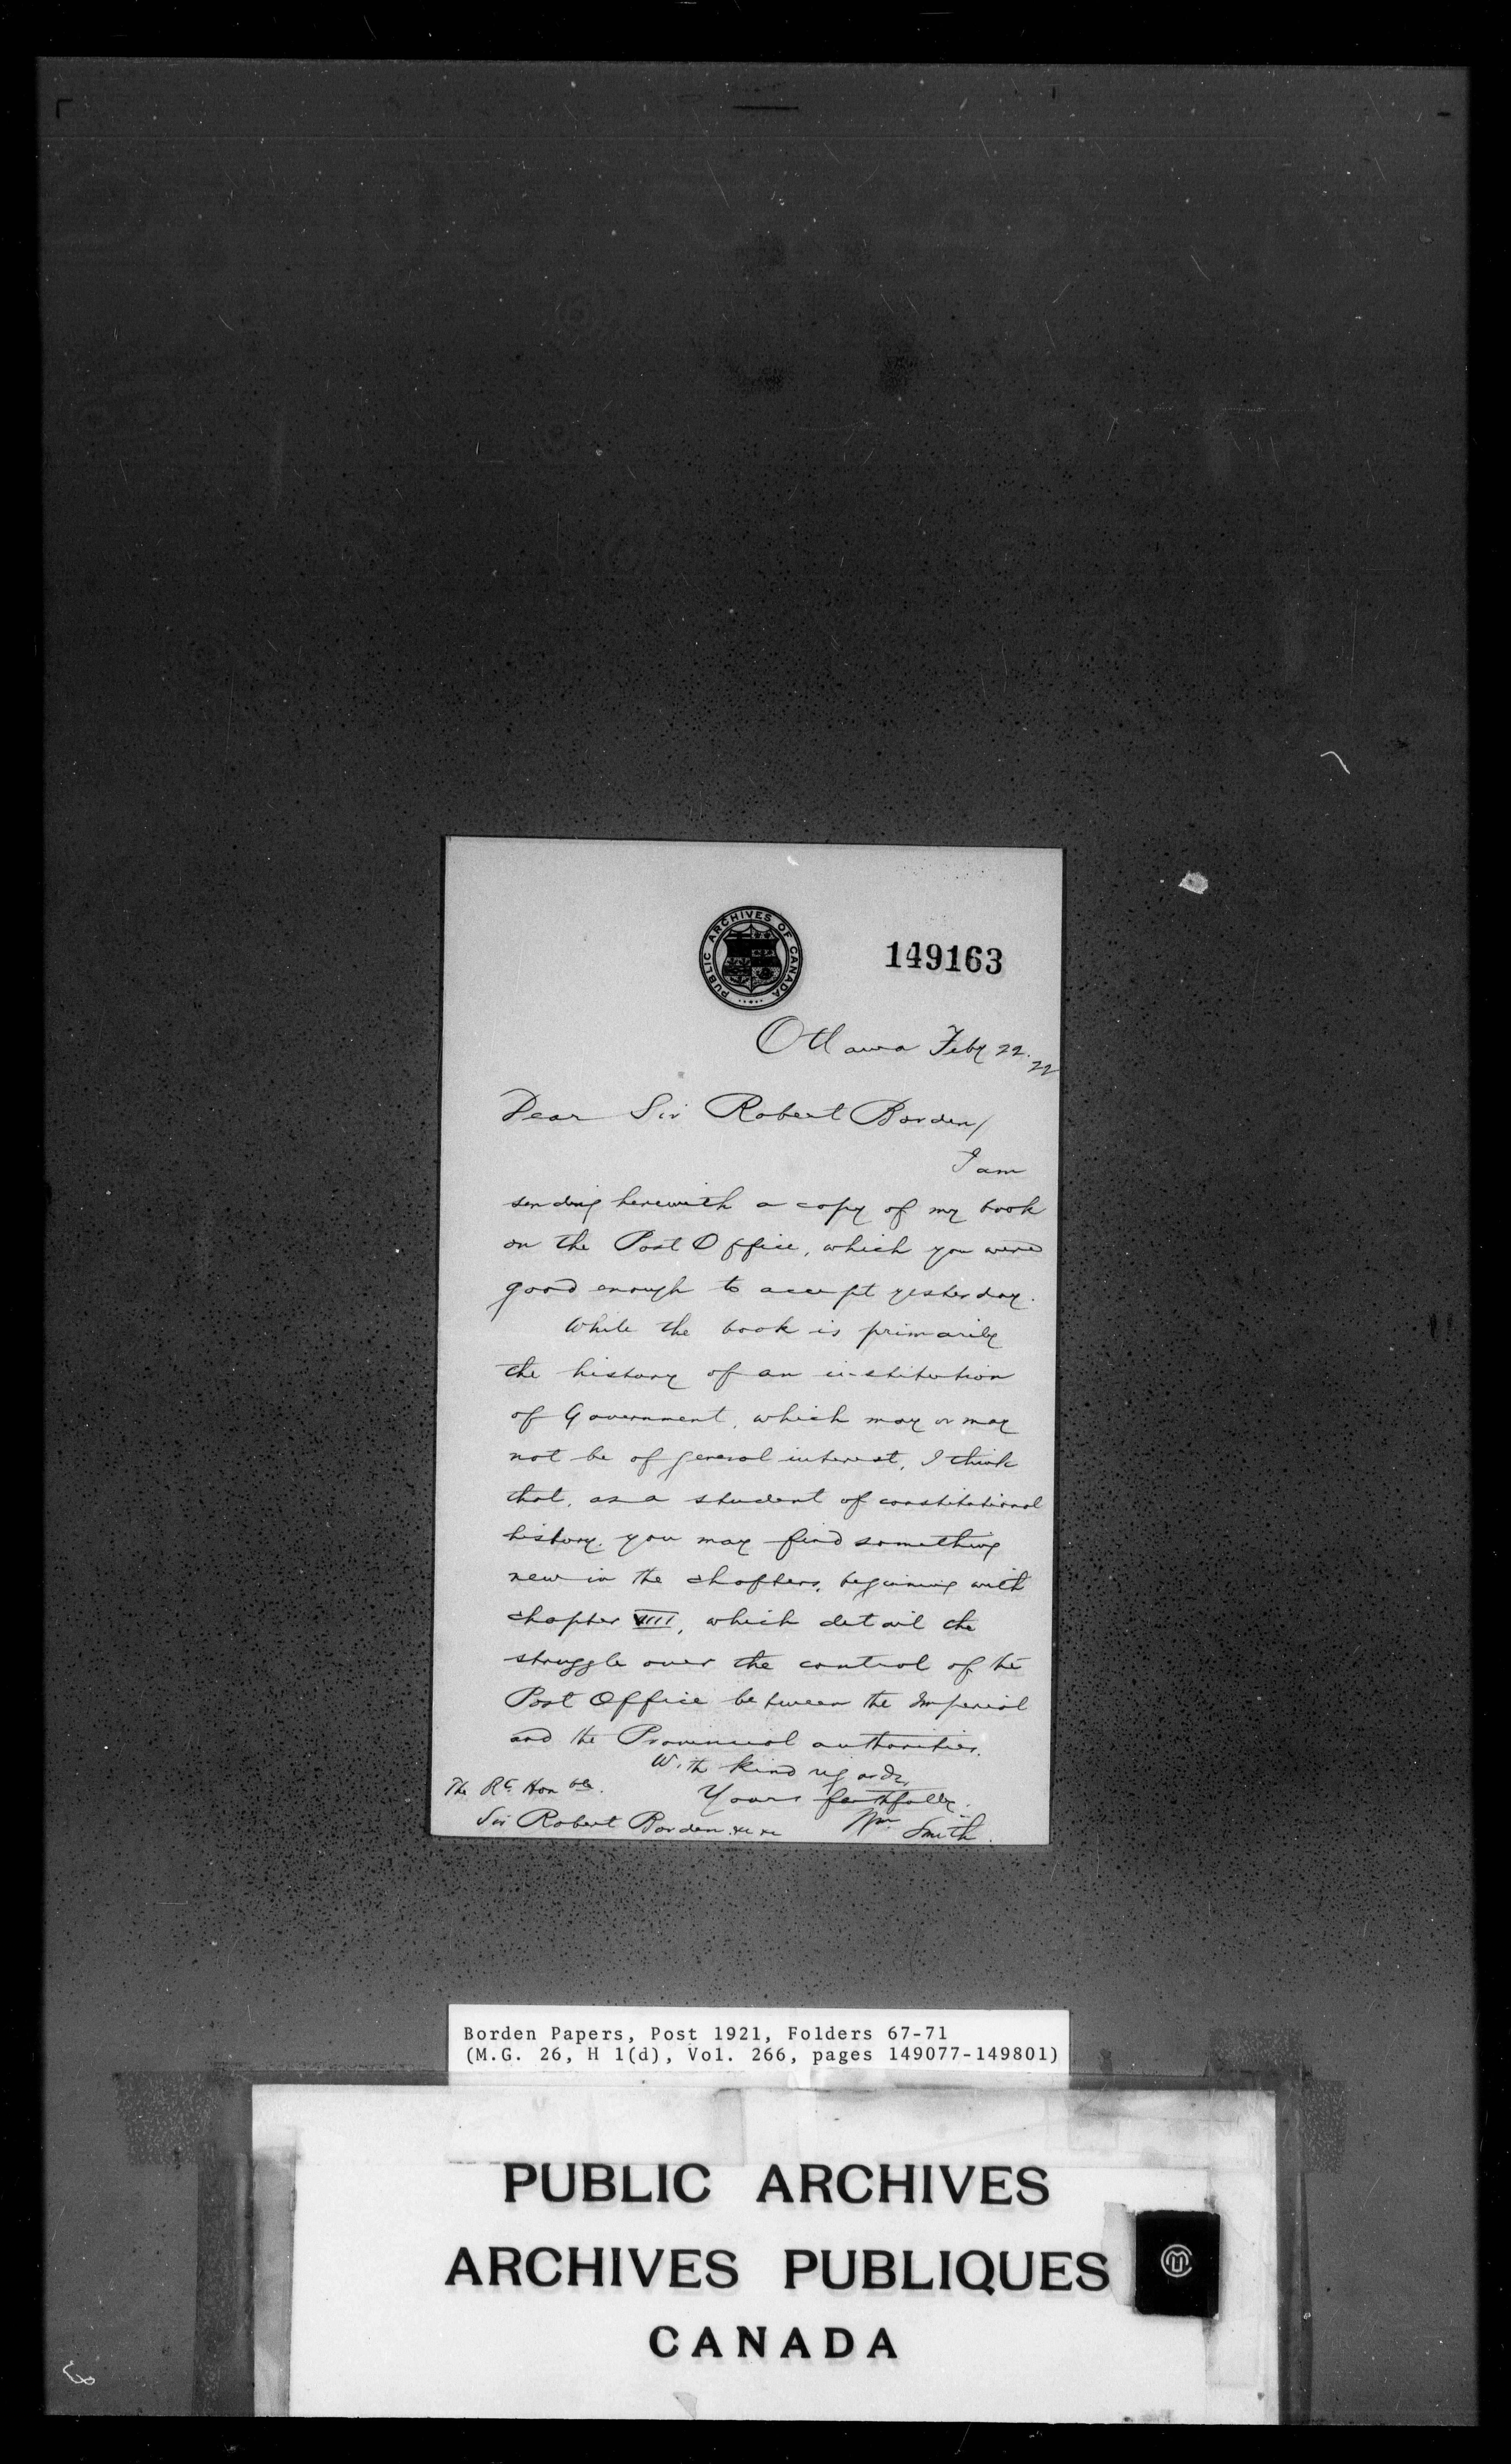 PUBLIC ARCHIVES OF CANADA
149163
Ottawa Feby 22. 22
Dear Sir Robert Borden/
I am
sending herewith a copy of my book
on the Post Office, which you were
good enough to accept yesterday.
While the book is primarily
the history of an institution
of Government, which may or may
not be of general interest, I think
that, as a student of constitutional
history, you may find something
new in the chapters, beginning with
chapter VIII, which detail the
struggle over the control of the
Post Office between the Imperial
and the Provincial authorities.
With kind regards,
Yours faithfully.
Wm Smith.
The Rt. Honble.
Sir Robert Borden &c &c
Borden Papers, Post 1921, Folders 67-71
(M.G. 26, H 1(d), Vol. 266, pages 149077-149801)
PUBLIC ARCHIVES
ARCHIVES PUBLIQUES
CANADA